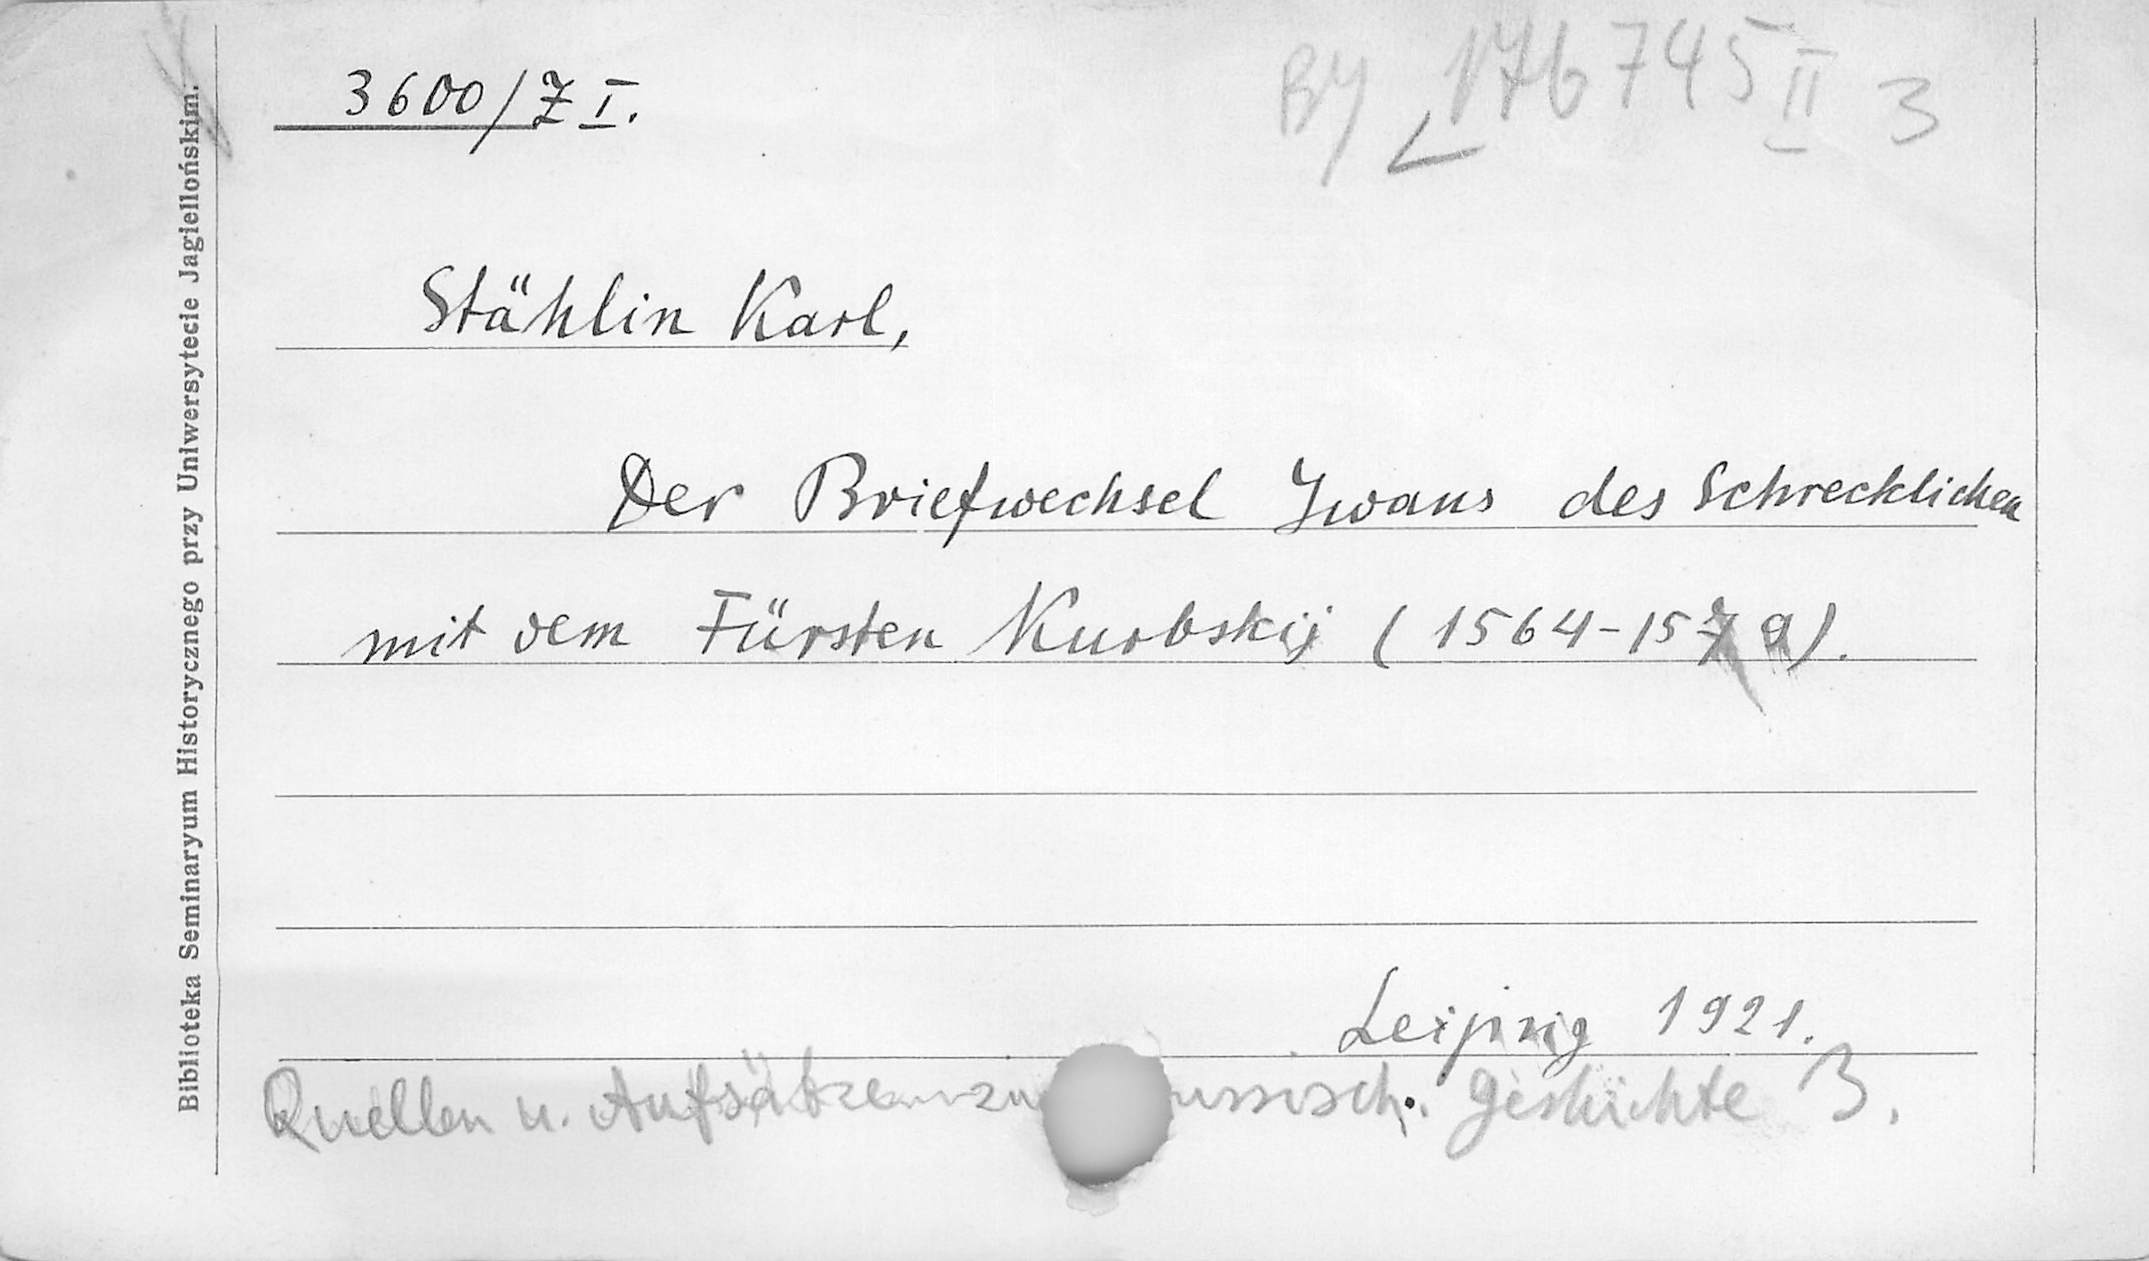 3600/Z I.
BJ 176745 II 3
Stählin Karl,
Der Briefwechsel Iwans des Schrecklichen
mit dem Fürsten Kurbskij (1564-1579).
Leipzig 1921.
Quellen u. Aufsätze zu ussisch. Geschichte 3.
Biblioteka Seminaryum Historycznego przy Uniwersytecie Jagiellońskim.